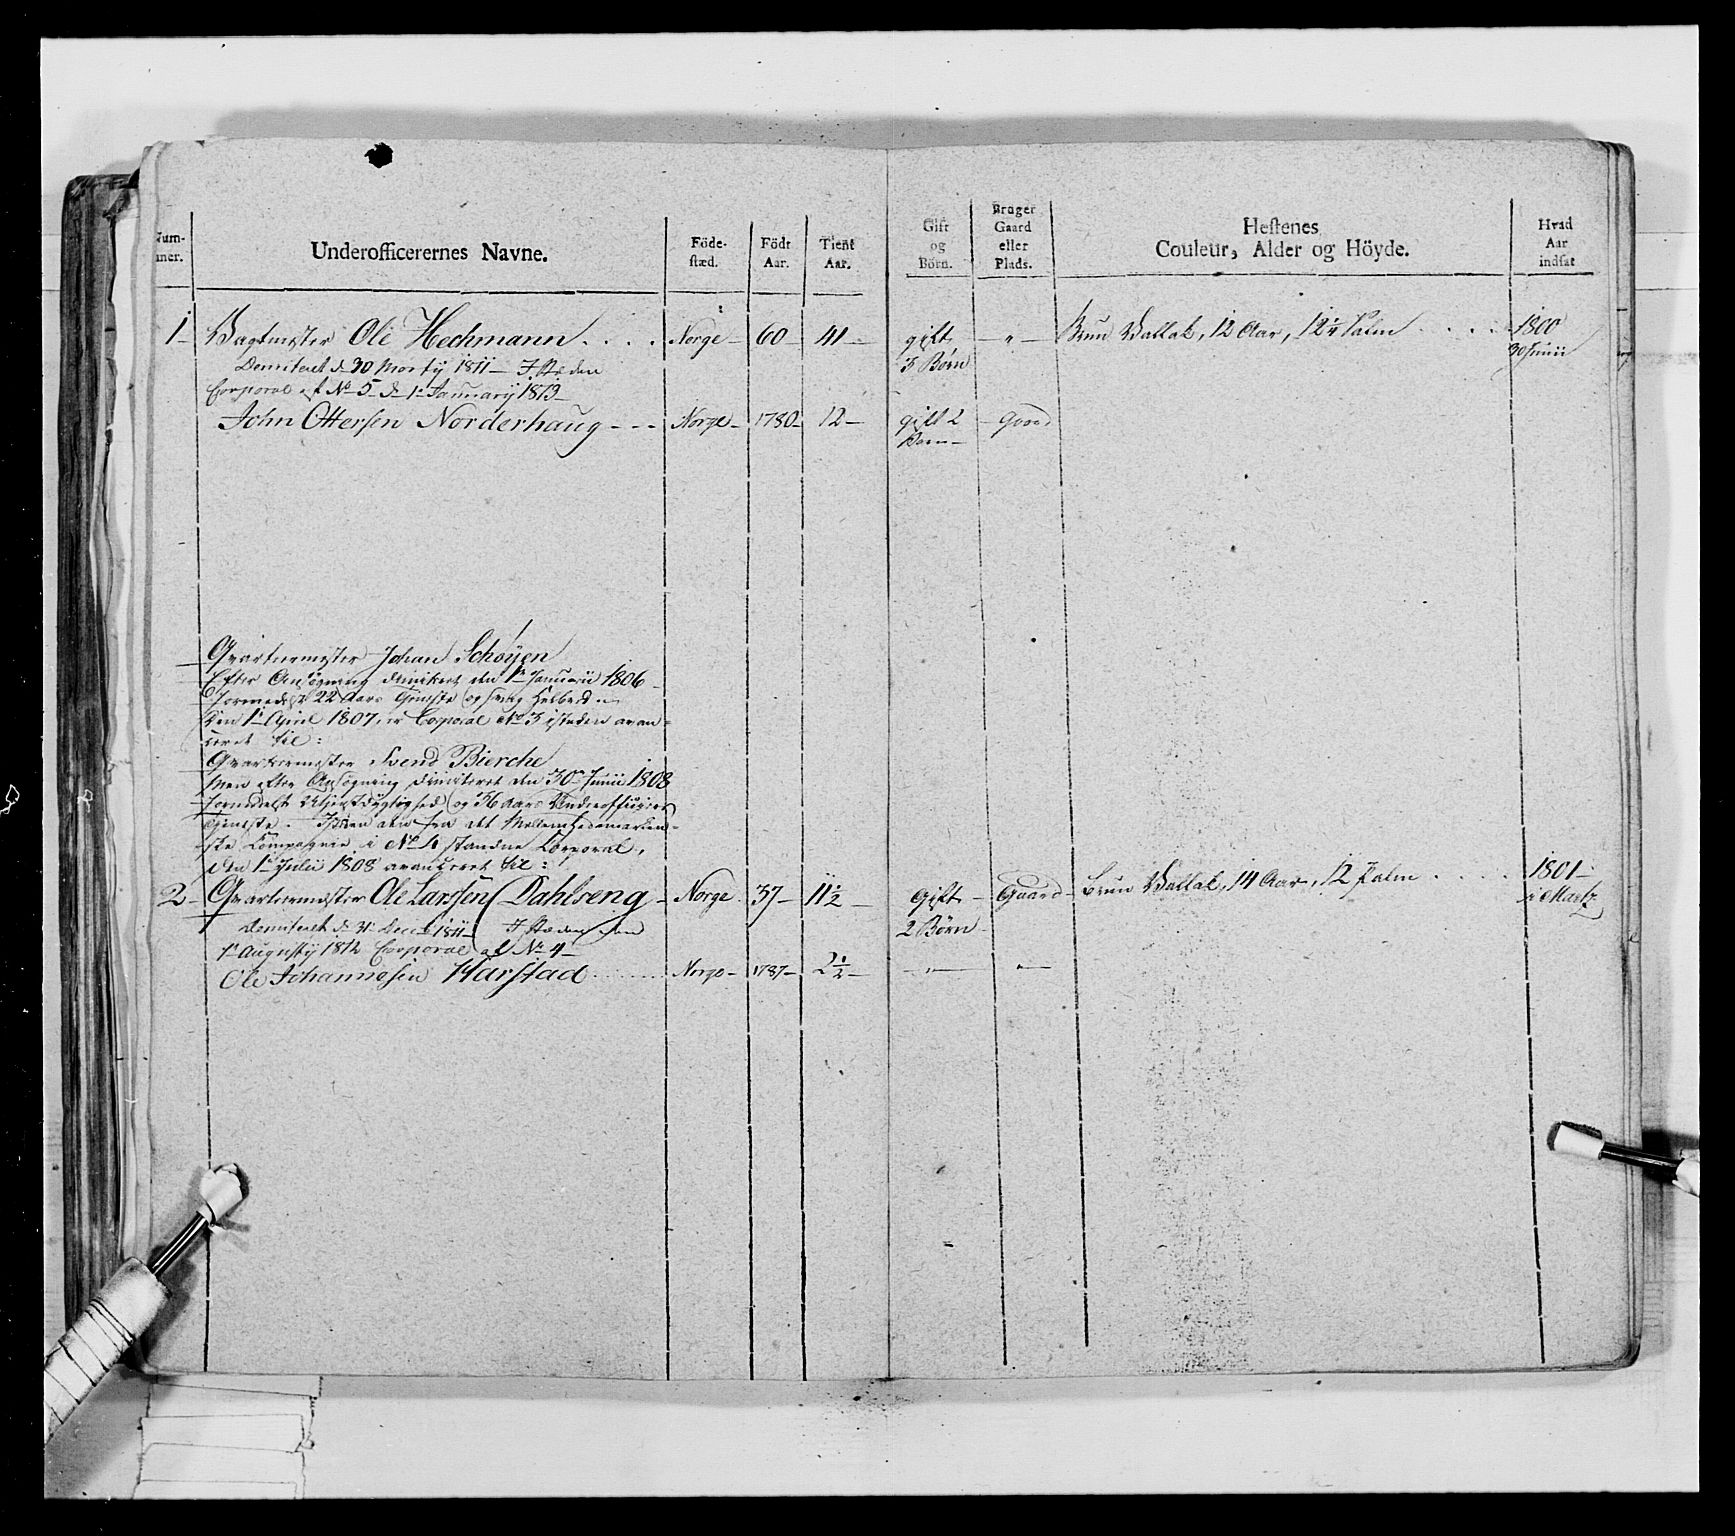 Num-
mer.
Underofficerernes Navne.
Föde-
stæd.
Födt
Aar.
Tient
Aar.
Gift
og
Börn.
Bruger
Gaard
eller
Plads.
Hestenes
Couleur, Alder og Höyde.
Hvad
Aar
indsat
1 Vagtmester Ole Hechmann . . . . Norge 60 41 gift, 3 Børn " Brun Vallak, 12 Aar, 12 1/4 Palm . . . . 1800 30 Junii
Demiteret d 30 1811 I Steden
Corporal af No 5 d 1 January 1813
John Ottersen Norderhaug - - - Norge 1780 12 gift 2 Børn Gaard
Qvarteermester Johan Schøyen
Efter Ansøgning dimitteret den 1te Januarii 1806
formedelst 22 Aars Tieneste og svag Helbred
den 1te April 1807, er Corporal No 3 isteden avan-
ceret til:
Qvarteermester Svend Bierche
Men efter Ansøgning dimitteret den 30te Junii 1808
formedelst Utienstdygtighed og 36 Aars Underofficeer
Tieneste. Isteden den fra det Mellemhedemarken-
ske Compagnie i No 4 standne Corporal,
den 1te Julii 1808 avanceret til:
2 Qvarteermester Ole Larssen Dahlseng Norge 37 11 1/2 Gift 2 Børn Gaard Brun Vallak, 14 Aar, 12 Palm . . . . . 1801 i Martz
Demiteret d 31 Decb 1811 I Steden den
1te Augusty 1812 Corporal af No 4
Ole Johannesen Harstad . . . . . . Norge 1787 2 1/2 " "